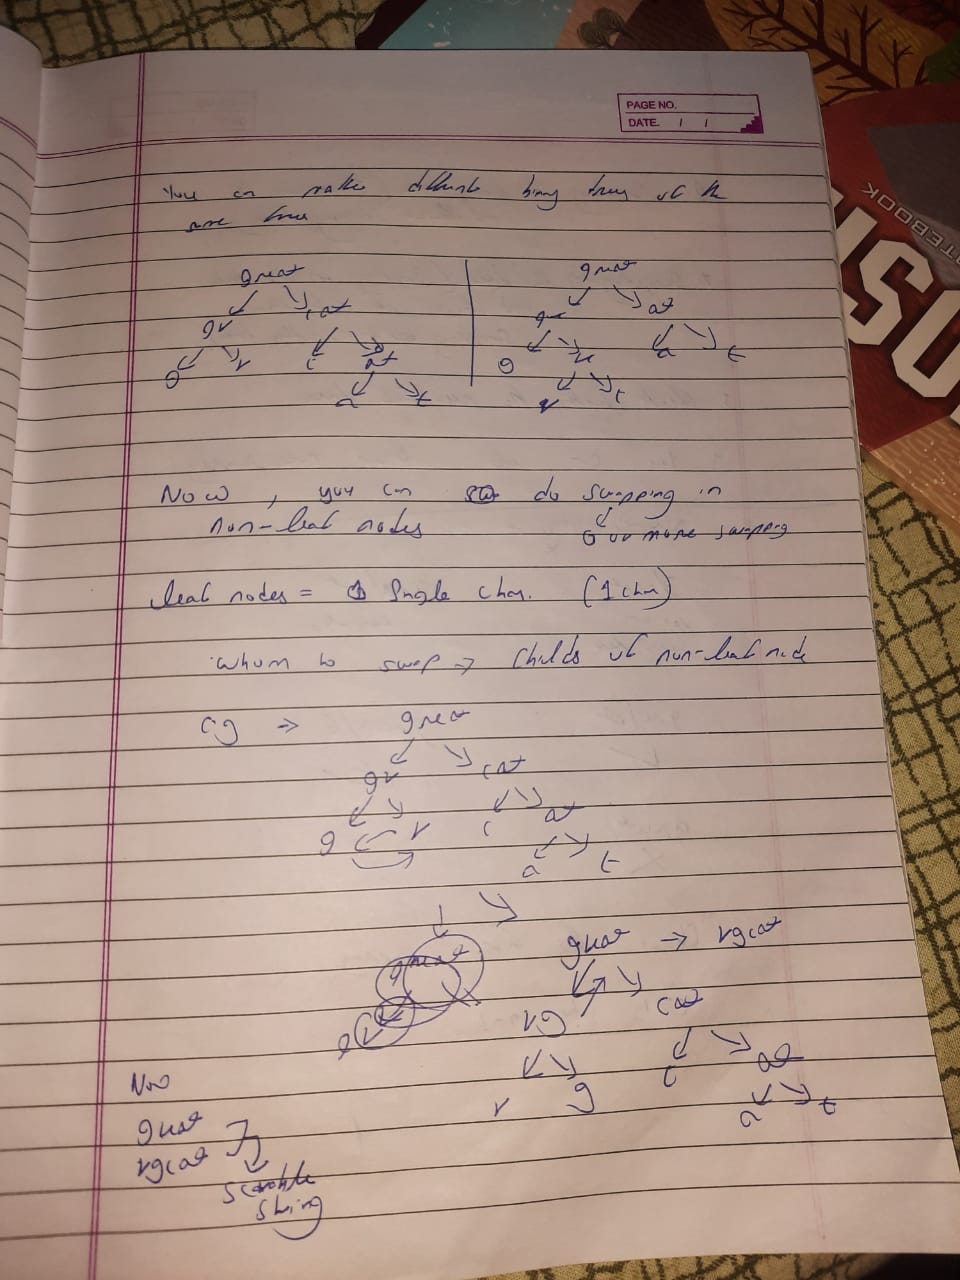 PAGE NO.
DATE / /
You can make different binary trees of the
same tree
great great
gr eat gre at
g r e at g re a t
a t r e
Now , you can do swapping in
non-leaf nodes 0 or more swapping
leaf nodes = Single char. (1 char)
whom to swap → childs of non-leaf node
eg → great
gr eat
g r e at
a t
great → rgeat
rg eat
r g e at
a t
Now
great
rgeat
Scramble
String
NOTEBOOK